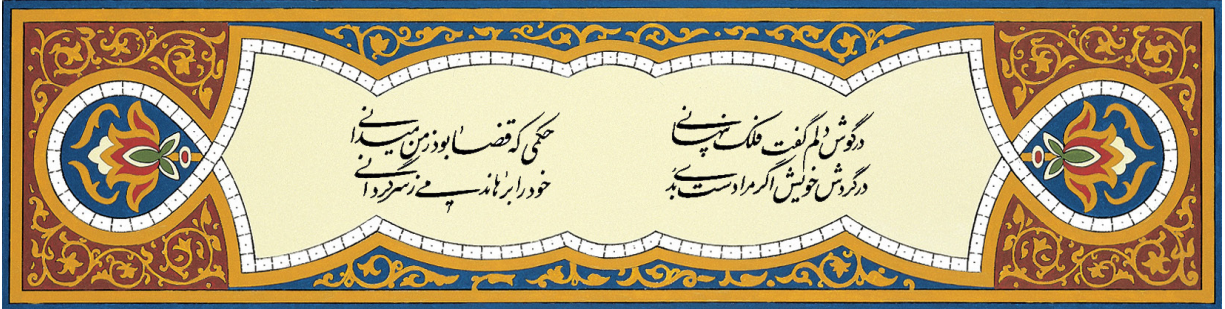 در گوش دلم گفت فلک پنهانی
حکمی که قضا بود ز من میدانی
در گردش خویش اگر مرا دست بدی
خود را برهاندمی ز سرگردانی